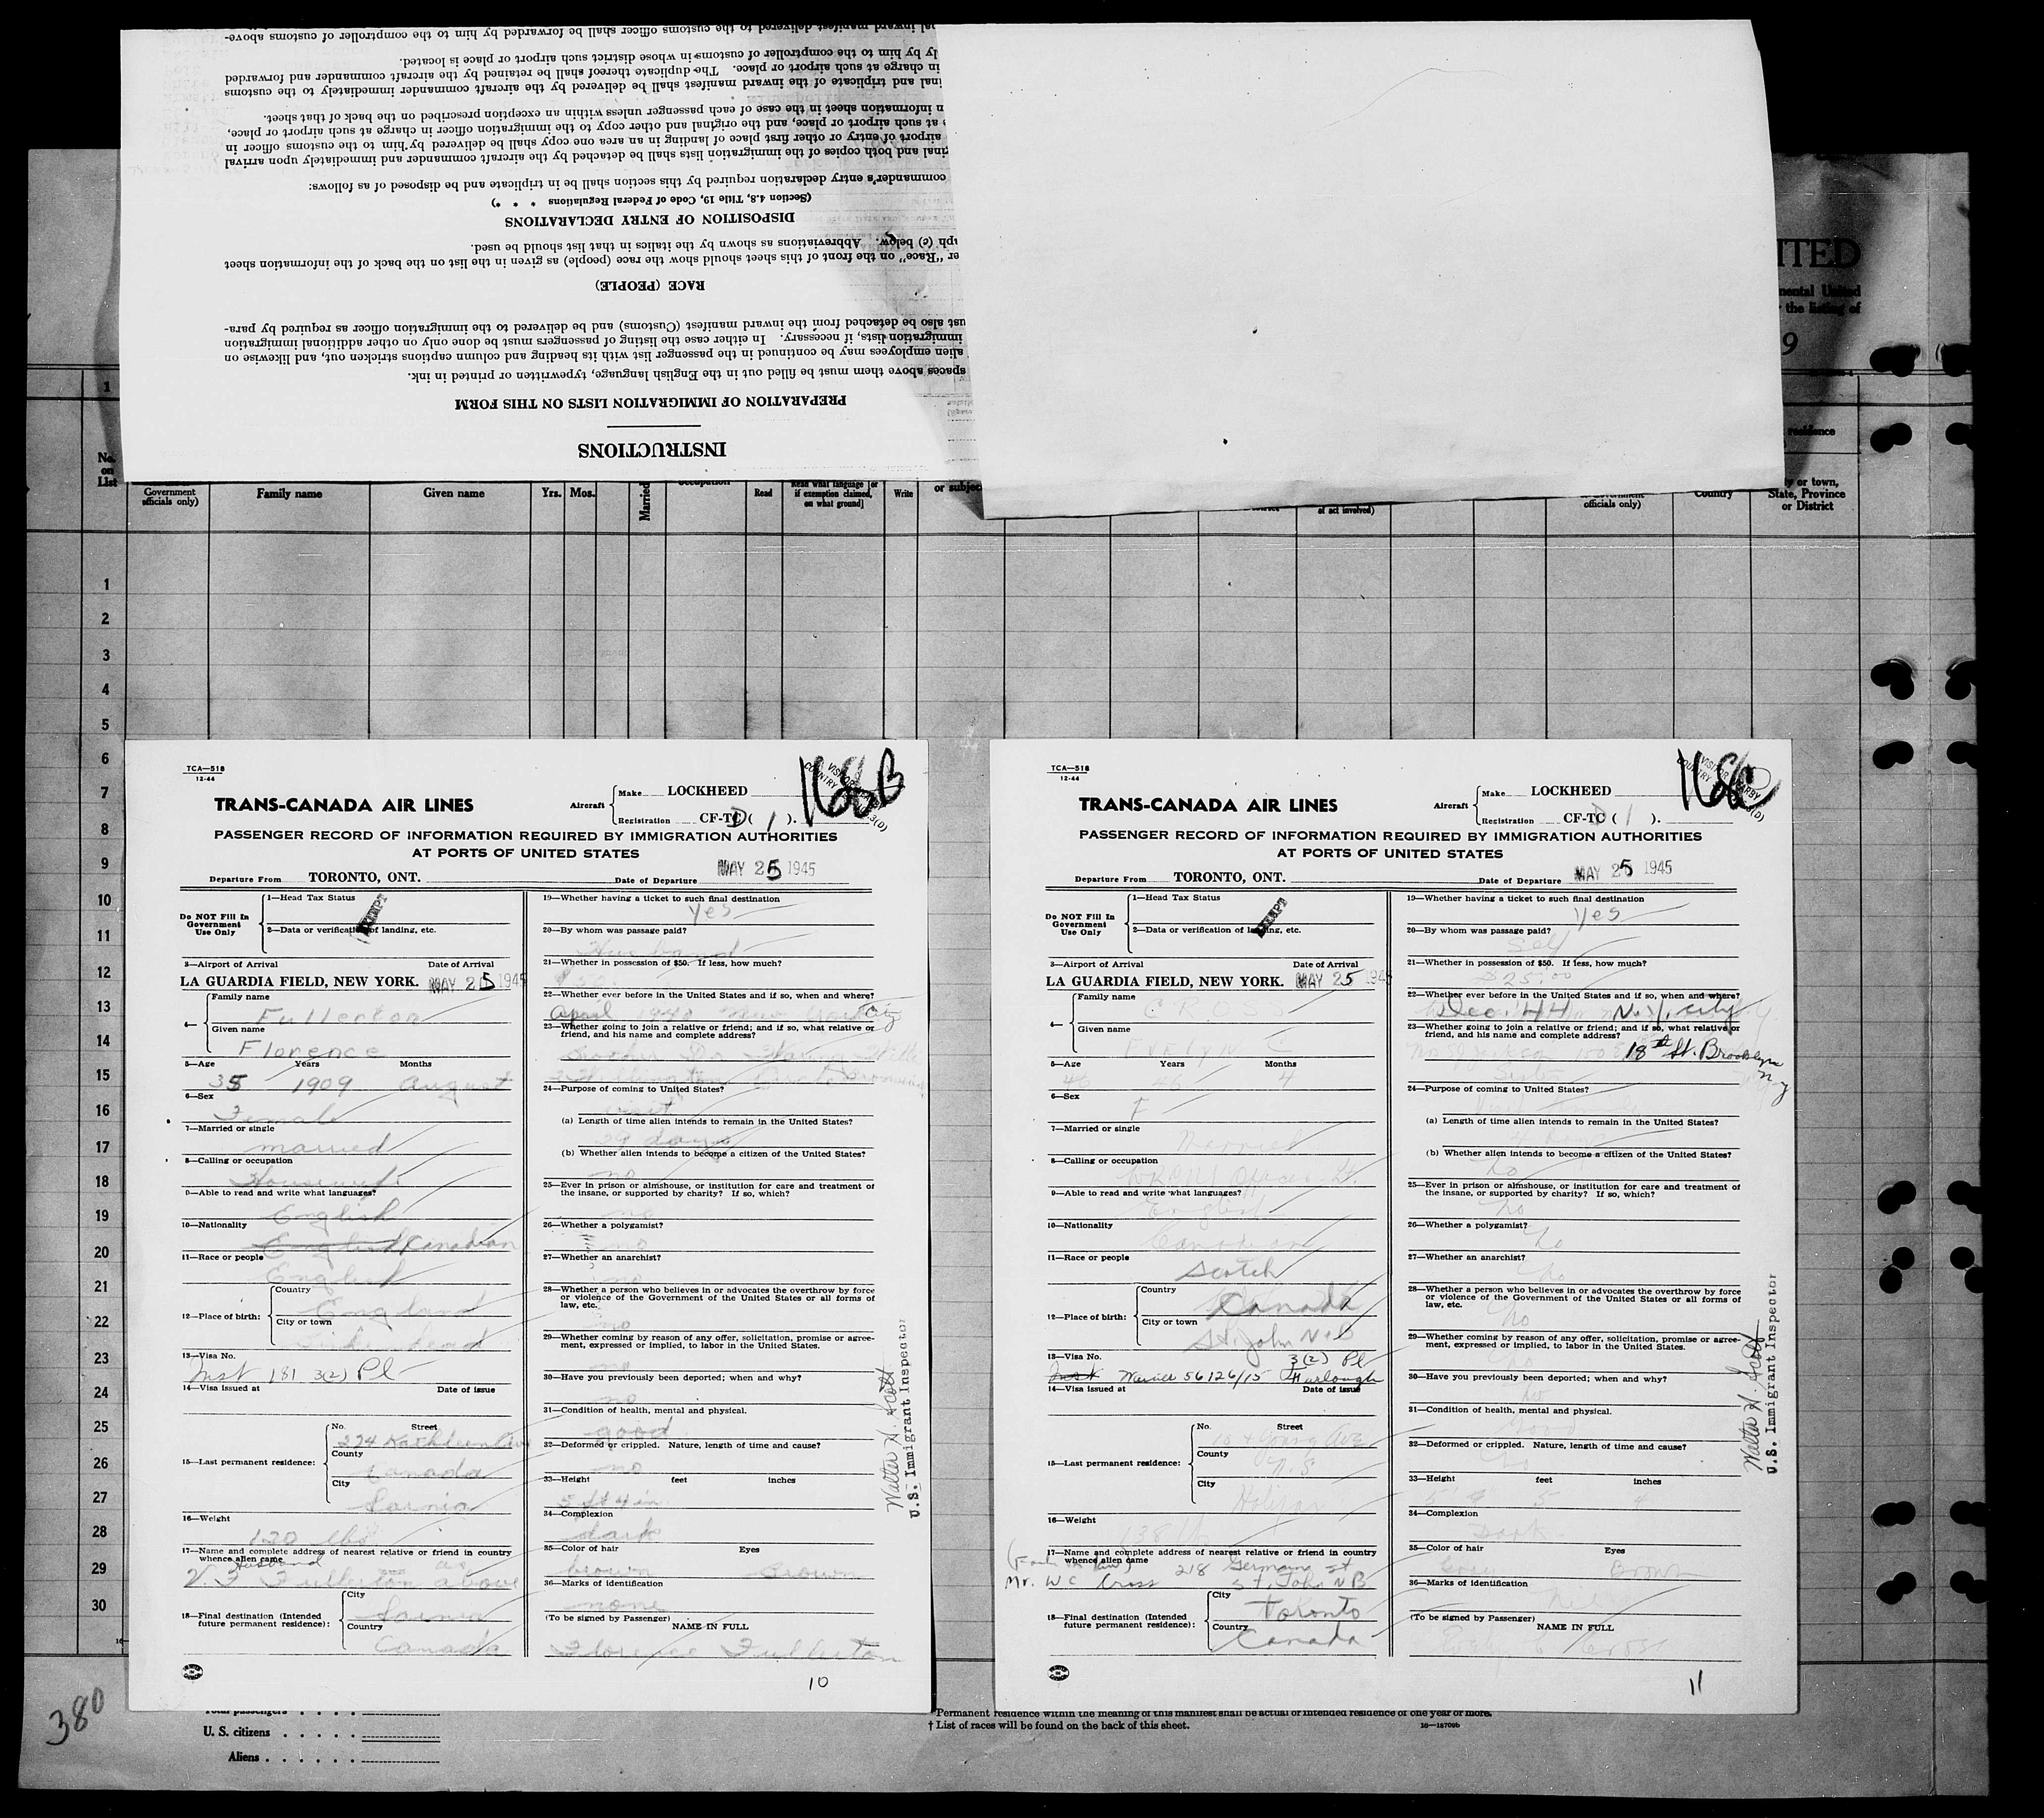 INSTRUCTIONS
PREPARATION OF IMMIGRATION LISTS ON THIS FORM
spaces above them must be filled out in the English language, typewritten or printed in ink.
alien employees may be continued in the passenger list with its heading and column captions stricken out, and likewise on
immigration lists, if necessary. In either case the listing of passengers must be done only on other additional immigration
ust also be detached from the inward manifest (Customs) and be delivered to the immigration officer as required by para-
RACE (PEOPLE)
er "Race" on the front of this sheet should show the race (people) as given in the list on the back of the information sheet
aph (c) below. Abbreviations as shown by the italics in that list should be used.
DISPOSITION OF ENTRY DECLARATIONS
(Section 4.8, Title 19, Code of Federal Regulations * * *)
commander's entry declaration required by this section shall be in triplicate and be disposed of as follows:
ginal and both copies of the immigration lists shall be detached by the aircraft commander and immediately upon arrival
airport of entry or other first place of landing in an area one copy shall be delivered by him to the customs officer in
at such airport or place, and the original and other copy to the immigration officer in charge at such airport or place,
n information sheet in the case of each passenger unless within an exception prescribed on the back of that sheet.
inal and triplicate of the inward manifest shall be delivered by the aircraft commander immediately to the customs
in charge at such airport or place. The duplicate thereof shall be retained by the aircraft commander and forwarded
ly by him to the comptroller of customs in whose district such airport or place is located.
ual inward manifest delivered to the customs officer shall be forwarded by him to the comptroller of customs above-
ITED
mental United
the listing of
9
1
residence
No. on List
Government officials only)
Family name
Given name
Yrs.
Mos.
Married
Read
Read what language [or if exemption claimed, on what ground]
Write
or subjec
of act involved)
officials only)
Country
y or town, State, Province or District
1
2
3
4
5
6
7
8
9
10
11
12
13
14
15
16
17
18
19
20
21
22
23
24
25
26
27
28
29
30
TCA—518
12-44
TRANS-CANADA AIR LINES
Aircraft
Make LOCKHEED
Registration CF-TC ( D 1 ).
168B
PASSENGER RECORD OF INFORMATION REQUIRED BY IMMIGRATION AUTHORITIES
AT PORTS OF UNITED STATES
Departure From TORONTO, ONT. Date of Departure MAY 25 1945
Do NOT Fill In Government Use Only
1—Head Tax Status
EXEMPT
2—Data or verification of landing, etc.
3—Airport of Arrival Date of Arrival
LA GUARDIA FIELD, NEW YORK. MAY 25 1945
4—
Family name
Fullerton
Given name
Florence
5—Age Years Months
35 1909 August
6—Sex
Female
7—Married or single
married
8—Calling or occupation
Housewife
9—Able to read and write what languages?
English
10—Nationality
English Canadian
11—Race or people
English
12—Place of birth:
Country
England
City or town
Birkenhead
13—Visa No.
Inst 181 3(2) Pl
14—Visa issued at Date of issue
15—Last permanent residence:
No. Street
274 Kathleen Ave
County
Canada
City
Sarnia
16—Weight
120 lbs
17—Name and complete address of nearest relative or friend in country
whence alien came
Husband
V. F Fullerton as above
18—Final destination (Intended
future permanent residence):
City
Sarnia
Country
Canada
19—Whether having a ticket to such final destination
Yes
20—By whom was passage paid?
Husband
21—Whether in possession of $50. If less, how much?
22—Whether ever before in the United States and if so, when and where?
April 1940 New York City
23—Whether going to join a relative or friend; and if so, what relative or
friend, and his name and complete address?
24—Purpose of coming to United States?
visit
(a) Length of time alien intends to remain in the United States?
29 days
(b) Whether alien intends to become a citizen of the United States?
no
25—Ever in prison or almshouse, or institution for care and treatment of
the insane, or supported by charity? If so, which?
no
26—Whether a polygamist?
no
27—Whether an anarchist?
no
28—Whether a person who believes in or advocates the overthrow by force
or violence of the Government of the United States or all forms of
law, etc.
no
29—Whether coming by reason of any offer, solicitation, promise or agree-
ment, expressed or implied, to labor in the United States.
no
30—Have you previously been deported; when and why?
no
31—Condition of health, mental and physical.
good
32—Deformed or crippled. Nature, length of time and cause?
no
33—Height feet inches
5 ft 4 in
34—Complexion
dark
35—Color of hair Eyes
brown Brown
36—Marks of identification
none
(To be signed by Passenger) NAME IN FULL
Florence Fullerton
10
Walter H. Scott
U.S. Immigrant Inspector
TCA—518
12-44
TRANS-CANADA AIR LINES
Aircraft
Make LOCKHEED
Registration CF-TC ( D 1 ).
168C
PASSENGER RECORD OF INFORMATION REQUIRED BY IMMIGRATION AUTHORITIES
AT PORTS OF UNITED STATES
Departure From TORONTO, ONT. Date of Departure MAY 25 1945
Do NOT Fill In Government Use Only
1—Head Tax Status
EXEMPT
2—Data or verification of landing, etc.
3—Airport of Arrival Date of Arrival
LA GUARDIA FIELD, NEW YORK. MAY 25 1945
4—
Family name
CROSS
Given name
5—Age Years Months
46 46 4
6—Sex
F
7—Married or single
Married
8—Calling or occupation
9—Able to read and write what languages?
English
10—Nationality
Canadian
11—Race or people
Scotch
12—Place of birth:
Country
Canada
City or town
St. John N.B
13—Visa No. 3(2) Pl
Inst Warrier 56126/15 Furlough
14—Visa issued at Date of issue
15—Last permanent residence:
No. Street
10 Young Ave
County
N.S
City
Halifax
16—Weight
138 lb
17—Name and complete address of nearest relative or friend in country
whence alien came
(Father in law)
Mr. W C Cross 218 Germain St
St. John N B
18—Final destination (Intended
future permanent residence):
City
Toronto
Country
Canada
19—Whether having a ticket to such final destination
Yes
20—By whom was passage paid?
Self
21—Whether in possession of $50. If less, how much?
$25.00
22—Whether ever before in the United States and if so, when and where?
Dec. 44 N.Y. City
23—Whether going to join a relative or friend; and if so, what relative or
friend, and his name and complete address?
18th St. Brooklyn
N Y
Sister
24—Purpose of coming to United States?
(a) Length of time alien intends to remain in the United States?
(b) Whether alien intends to become a citizen of the United States?
No
25—Ever in prison or almshouse, or institution for care and treatment of
the insane, or supported by charity? If so, which?
No
26—Whether a polygamist?
No
27—Whether an anarchist?
No
28—Whether a person who believes in or advocates the overthrow by force
or violence of the Government of the United States or all forms of
law, etc.
No
29—Whether coming by reason of any offer, solicitation, promise or agree-
ment, expressed or implied, to labor in the United States.
No
30—Have you previously been deported; when and why?
No
31—Condition of health, mental and physical.
Good
32—Deformed or crippled. Nature, length of time and cause?
No
33—Height feet inches
5 4
34—Complexion
Dark
35—Color of hair Eyes
Gray Brown
36—Marks of identification
Nil
(To be signed by Passenger) NAME IN FULL
11
Walter H. Scott
U.S. Immigrant Inspector
380
Total passengers
U. S. citizens
Aliens
*Permanent residence within the meaning of this manifest shall be actual or intended residence of one year or more.
† List of races will be found on the back of this sheet.
16—18709b